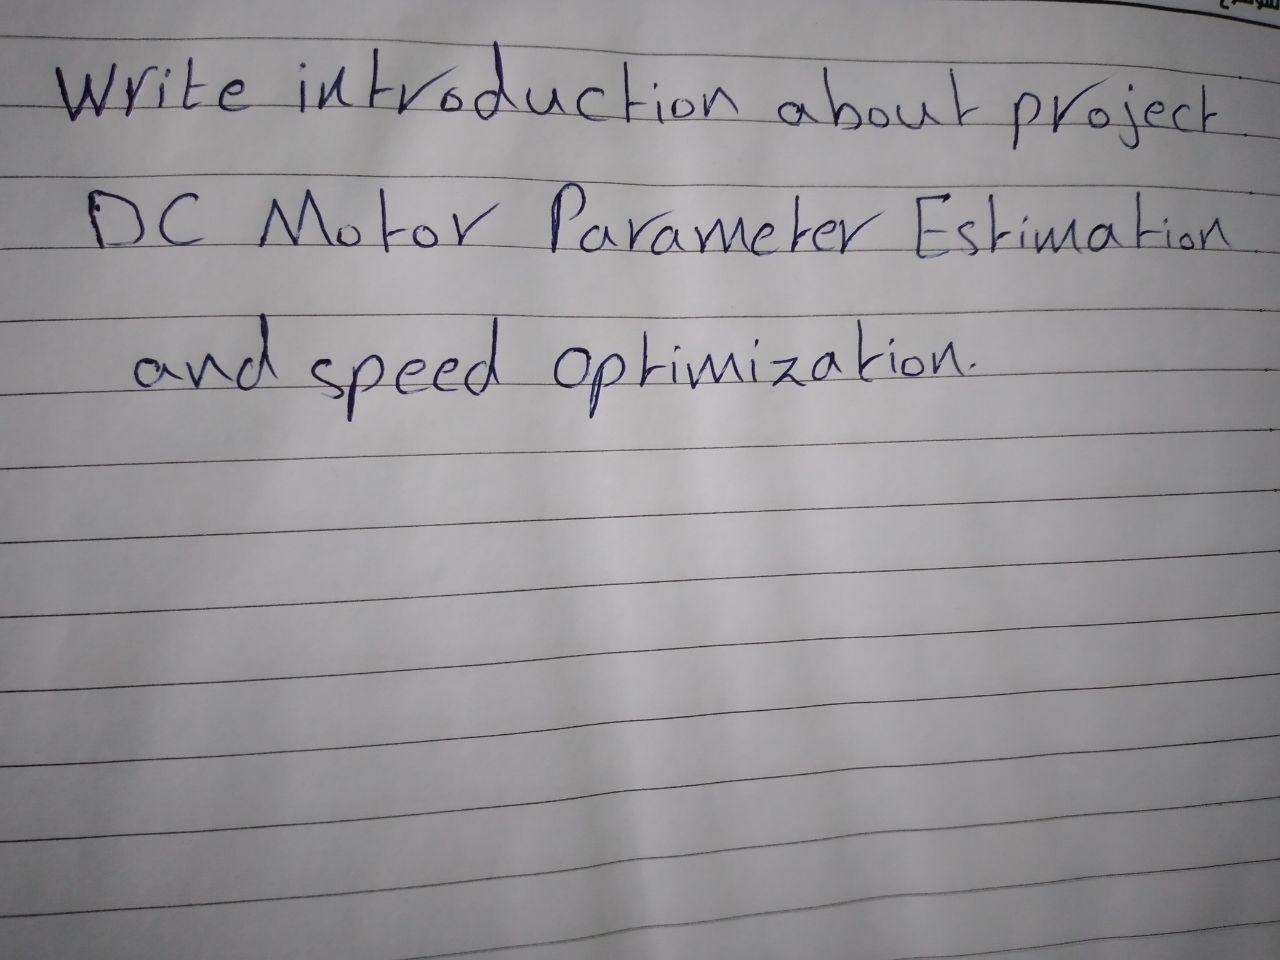 Write introduction about project
DC Motor Parameter Estimation
and speed optimization.